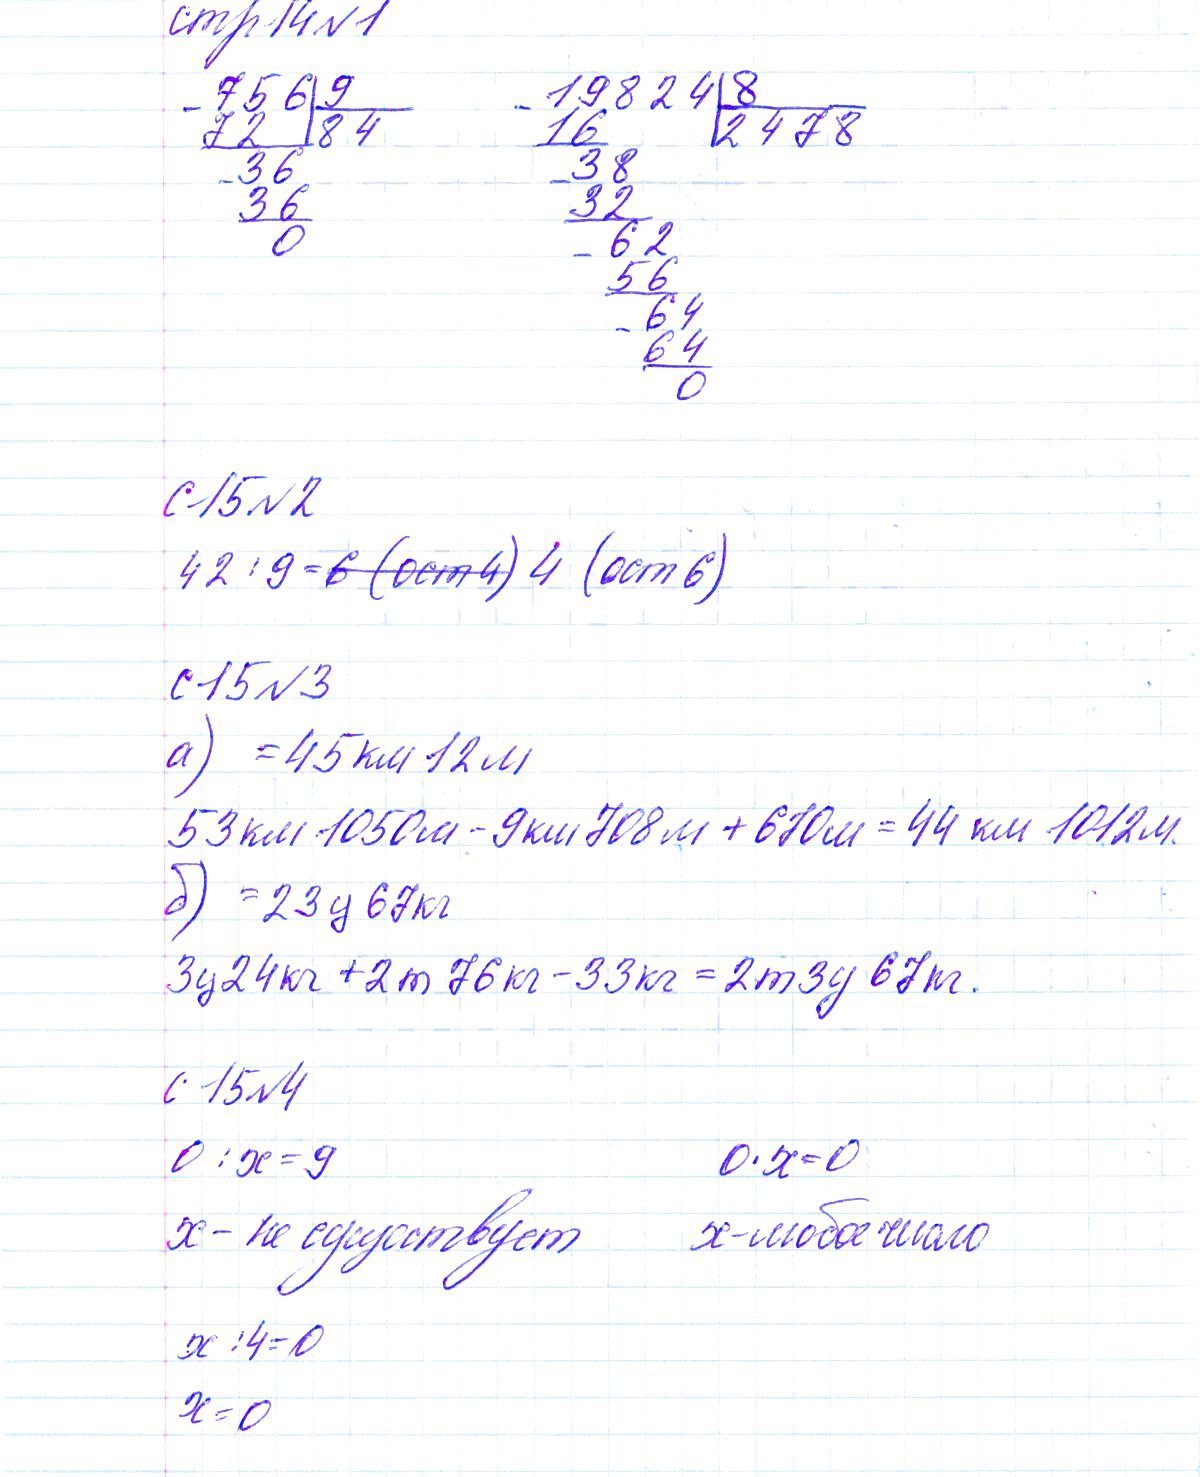 стр 14 №1
- 756 | 9 - 19824 | 8
72 84 16 2478
- 36 - 38
36 32
0 - 62
56
- 64
64
0
с 15 №2
42 : 9 = 6 (ост 4) 4 (ост 6)
с 15 №3
а) = 45 км 12 м
53 км 1050 м - 9 км 708 м + 670 м = 44 км 1012 м.
б) = 23 ц 67 кг
3 ц 24 кг + 2 т 76 кг - 33 кг = 2 т 3 ц 67 кг.
с 15 №4
0 : х = 9 0 · х = 0
х - не существует х - любое число
х : 4 = 0
х = 0